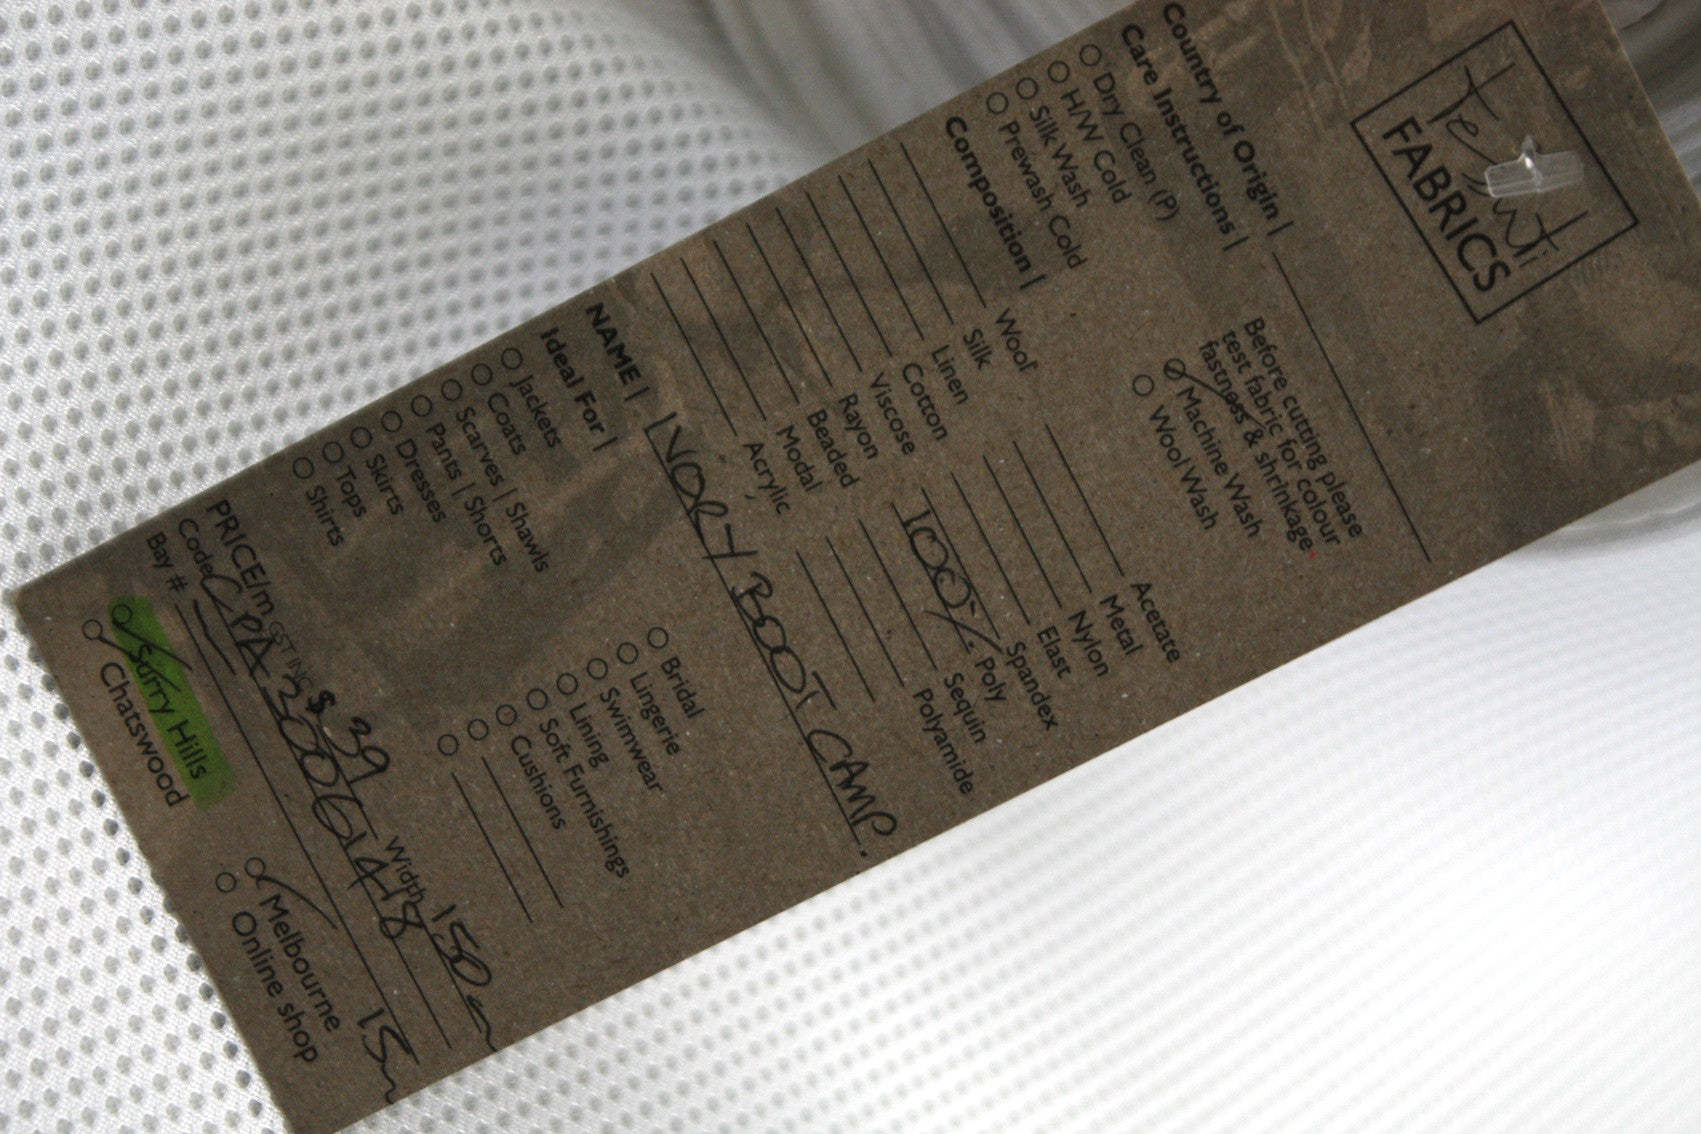 Tessuti
FABRICS
Country of Origin |
Care Instructions |
Dry Clean (P)
H/W Cold
Silk Wash
Prewash Cold
Before cutting please
test fabric for colour
fastness & shrinkage.
Machine Wash
Wool Wash
Composition |
Wool
Silk
Linen
Cotton
Viscose
Rayon
Beaded
Modal
Acrylic
Acetate
Metal
Nylon
Elast
Spandex
100% Poly
Sequin
Polyamide
NAME | IVORY BOOT CAMP.
Ideal For |
Jackets
Coats
Scarves | Shawls
Pants | Shorts
Dresses
Skirts
Tops
Shirts
Bridal
Lingerie
Swimwear
Lining
Soft Furnishings
Cushions
PRICE/m GST INC $ 39 Width 150cm
Code CPA30061418
Bay # 15m
Surry Hills
Chatswood
Melbourne
Online shop